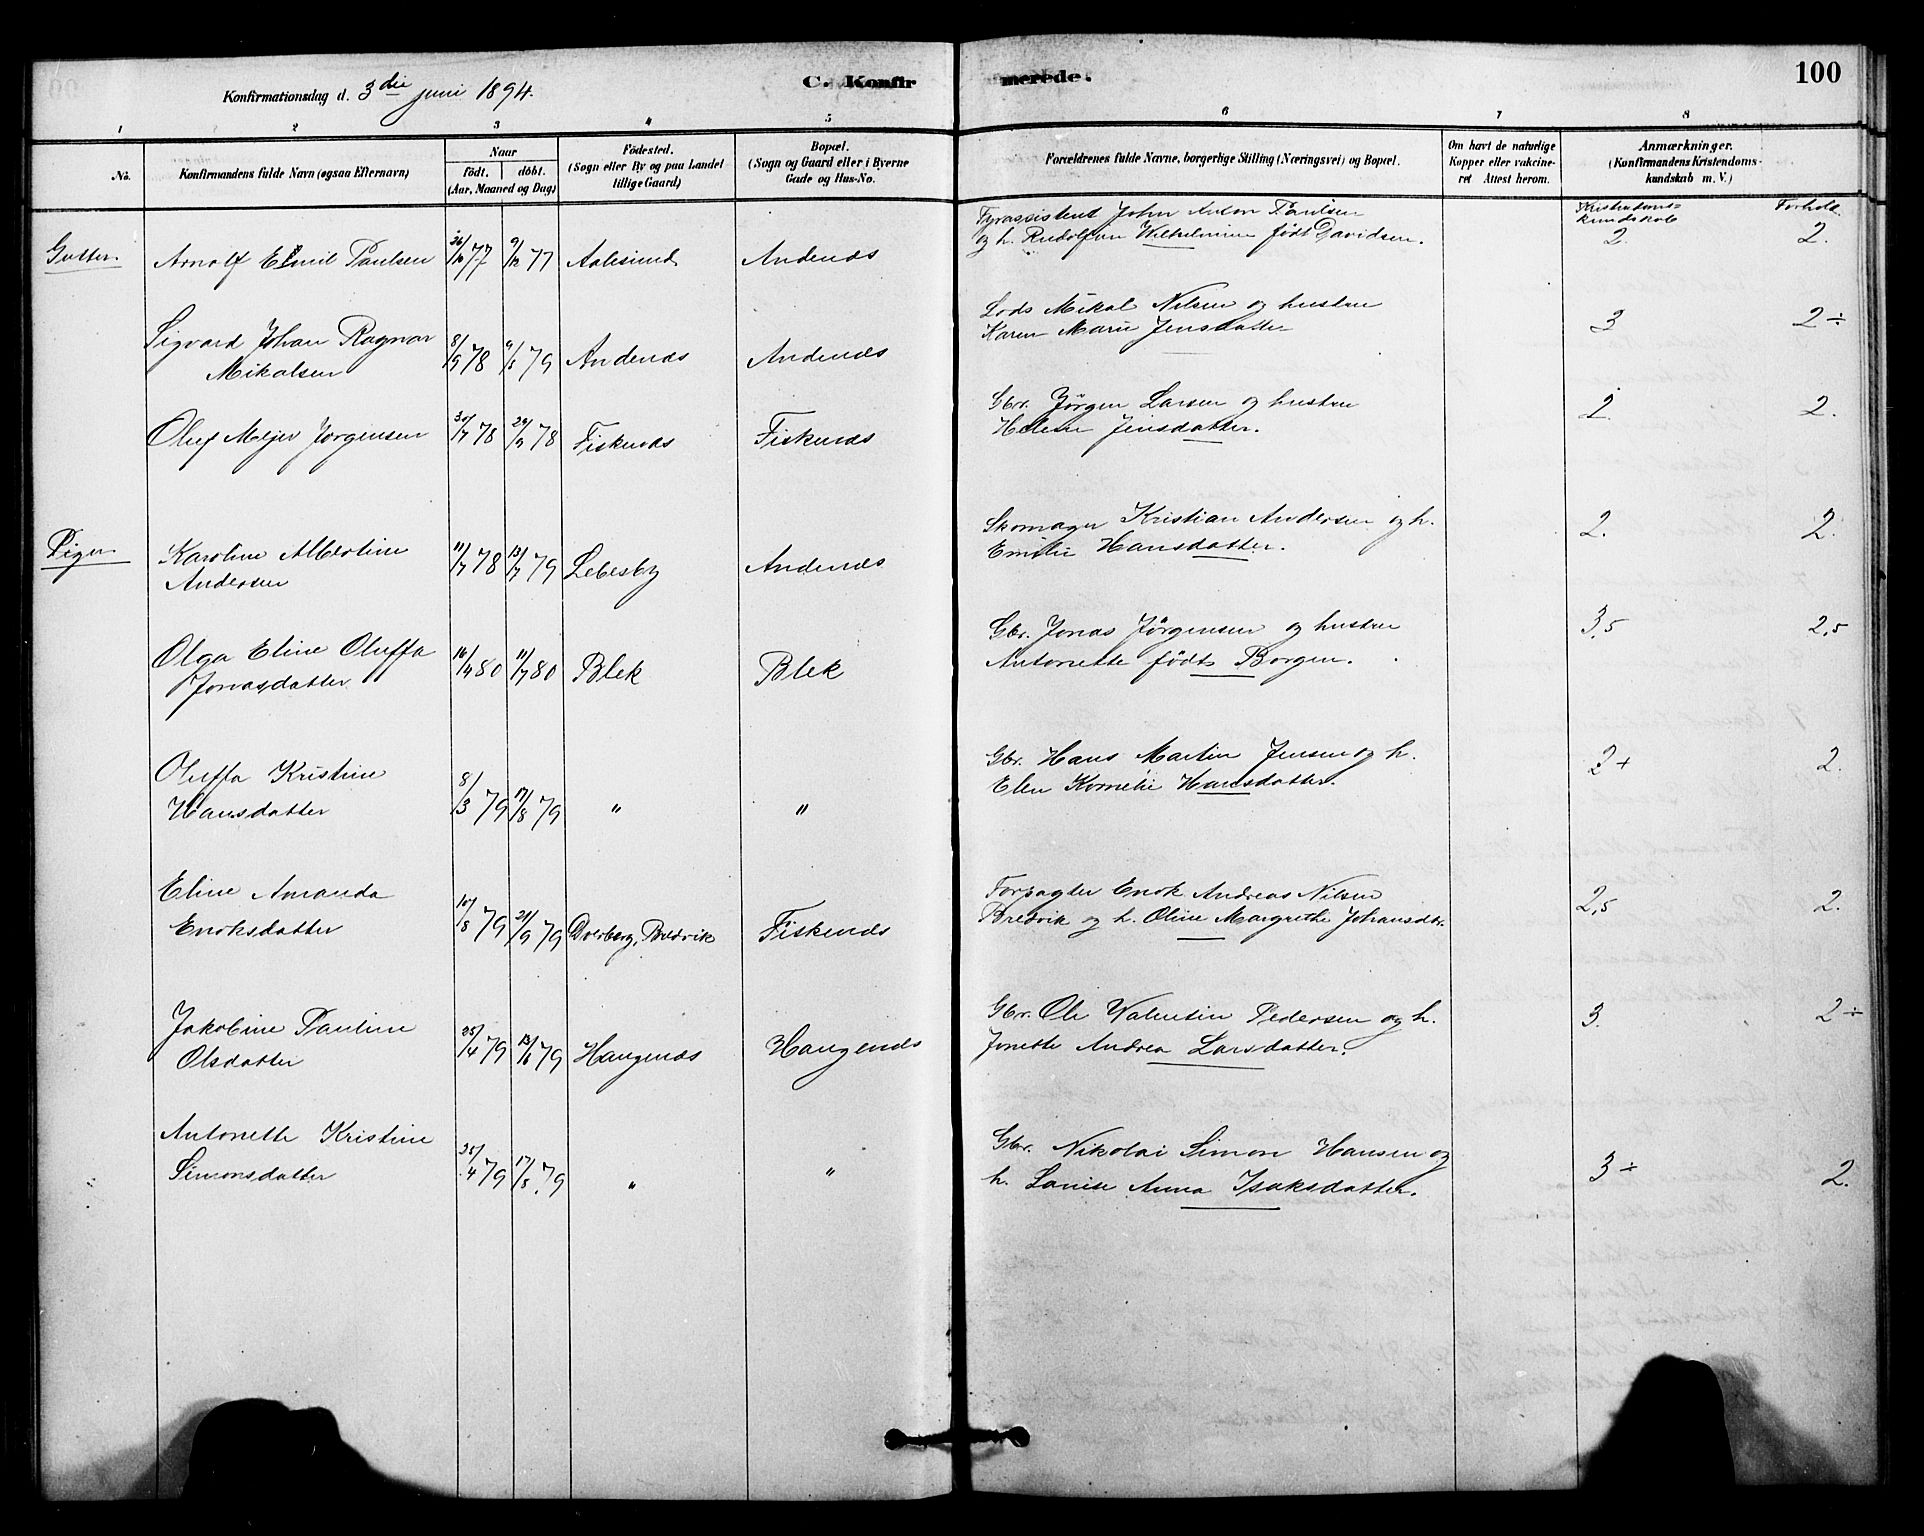 Konfirmationsdag d. 3die juni 1894.
C. Konfirmerede.
100
1 2 3 4 5 6 7 8
No.
Konfirmandens fulde Navn (ogsaa Efternavn)
Naar
födt. döbt.
(Aar, Maaned og Dag)
Födested.
(Sogn eller By og paa Landet
tillige Gaard)
Bopæl.
(Sogn og Gaard eller i Byerne
Gade og Hus-No.
Forældrenes fulde Navne, borgerlige Stilling (Næringsvei) og Bopæl.
Om havt de naturlige
Kopper eller vakcine-
ret Attest herom.
Anmærkninger.
(Konfirmandens Kristendoms-
kundskab m. V.)
Kristendoms-
kundskab
Forhold.
Gutter.
Arnolf Emil Paulsen 26/10 77 9/12 77 Aalesund Andenæs
Fyrassistent John Anton Paulsen
og h. Rudolfine Wilhelmine födt Davidsen. 2. 2.
Sigvard Johan Ragnvar
Mikalsen 8/9 78 79 Andenæs Andenæs
Lods Mikal Nilsen og hustru
Karen Marie Jensdatter 3 2÷
Oluf Mejer Jörgensen 30/7 78 29/9 78 Fiskenæs Fiskenæs
Gbr. Jörgen Larsen og hustru
Helene Jensdatter. 2 2.
Piger
Karoline Albertine
Andersen 11/7 78 13/7 79 Lebesby Andenæs
Skomager Kristian Andersen og h.
Emilie Hansdatter. 2. 2.
Olga Eline Oluffa
Jonasdatter 16/4 80 11/7 80 Blek Blek
Gbr. Jonas Jörgensen og hustru
Antonette födt Borgen. 3,5 2,5
Oluffa Kristine
Hansdatter 8/3 79 17/8 79 " "
Gbr. Hans Martin Jensen og h.
Elen Kornelie Hansdatter. 2+ 2.
Eline Amanda
Enoksdatter 10/8 79 21/9 79 Dverberg, Bredvik Fiskenæs
Forpagter Enok Andreas Nilsen
Bredvik og h. Oline Margrethe Johansdtr. 2,5 2.
Jakobine Pauline
Olsdatter 25/4 79 79 Haugenæs Haugenæs
Gbr. Ole Valentin Pedersen og h.
Jonette Andrea Larsdatter. 3. 2÷
Antonette Kristine
Simonsdatter 25/4 79 17/8 79 " "
Gbr. Nikolai Simon Hansen og
h. Lovise Anna Isaksdatter. 3÷ 2.